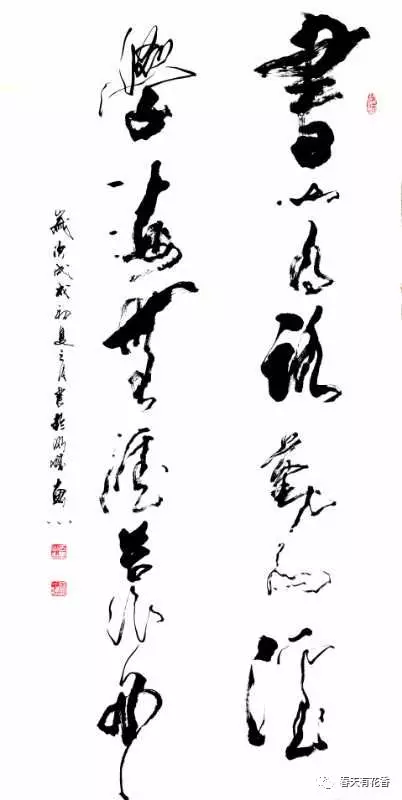 書山有路勤為徑
學海無涯苦作舟
歲次戊戌初夏之月書於
春天有花香